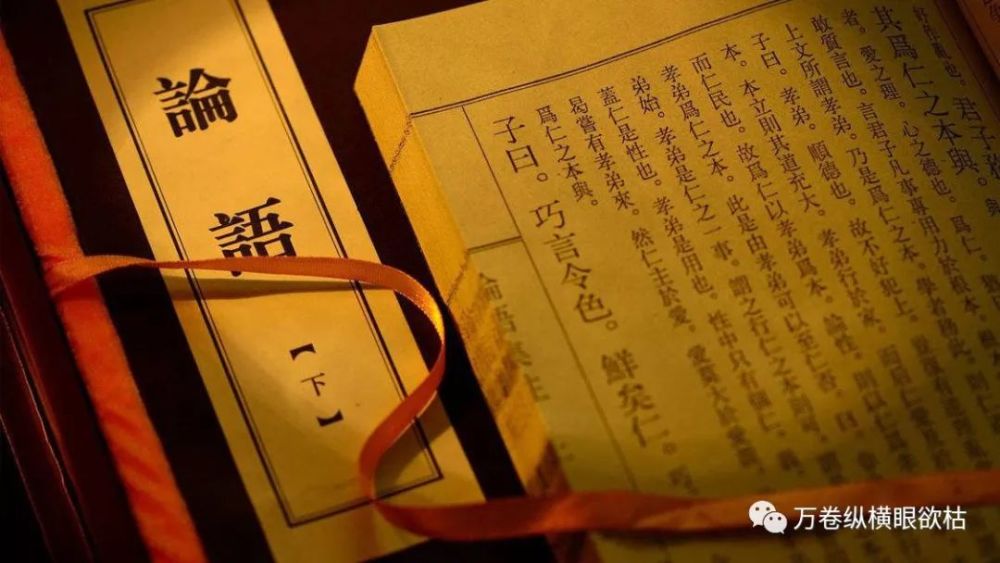 論語
【下】
作亂也。君子務
其爲仁之本與。
者。愛之理。心之德也。爲仁。
敢質言也。言君子凡事專用力於根本。
上文所謂孝弟。乃是爲仁之本。學者務此。
子曰。孝弟。順德也。故不好犯上。豈復有逆理
本。本立則其道充大。孝弟行於家。而後仁愛及於
而仁民也。故爲仁以孝弟爲本。論性。則以仁爲孝
孝弟爲仁之本。此是由孝弟可以至仁否。曰。
弟始。孝弟是仁之一事。謂之行仁之本則可。謂
蓋仁是性也。孝弟是用也。性中只有箇仁。義。
曷嘗有孝弟來。然仁主於愛。愛莫大於愛親。
爲仁之本與。
子曰。巧言令色。鮮矣仁。巧
論語集注
万卷纵横眼欲枯